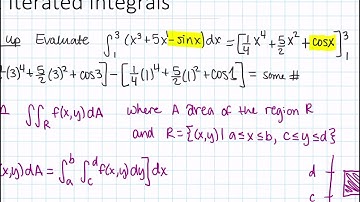 Iterated Integrals
up Evaluate ∫₁³ (x³+5x-sinx)dx = [¼x⁴+5/2x²+cosx]₁³
¼(3)⁴+5/2(3)²+cos3]-[¼(1)⁴+5/2(1)²+cos1] = some #
∬_R f(x,y)dA where A area of the region R
and R={(x,y)| a≤x≤b, c≤y≤d}
(x,y)dA = ∫ₐᵇ∫_c^d f(x,y)dy]dx
d
c